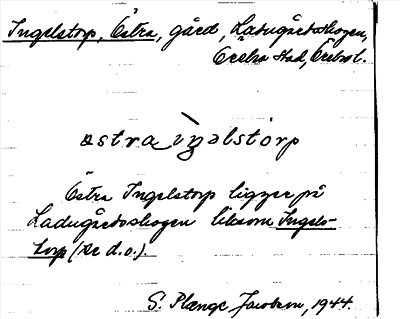 Ingelstorp, Östra, gård, Ladugårdsskogen,
Örebro stad, Örebro l.
östra iŋəlstorp
Östra Ingelstorp ligger på
Ladugårdsskogen liksom Ingels-
torp (se d.o.).
S. Plænge Jacobson, 1944.